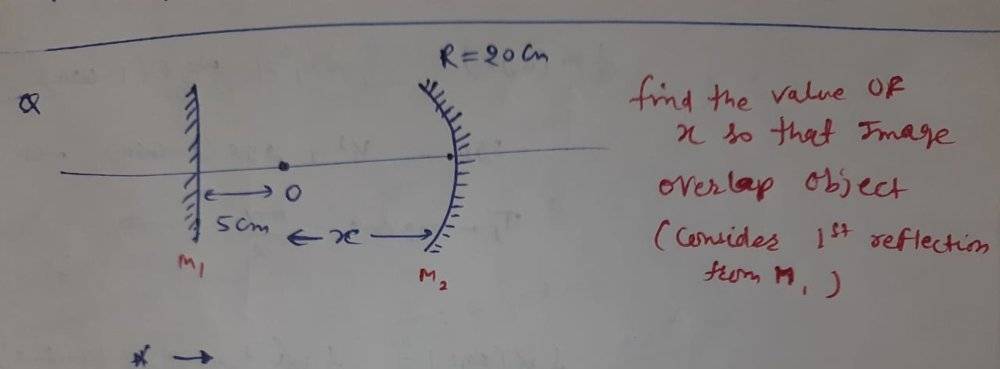 R = 20 cm
Q
find the value OF
x so that Image
overlap object
(Consider 1st reflection
from M1)
O
5cm
x
M1
M2
* →